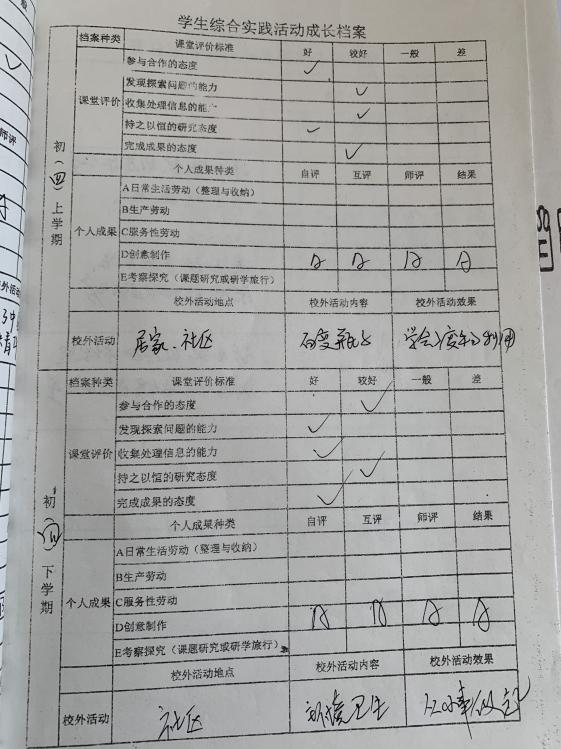 学生综合实践活动成长档案
档案种类 课堂评价标准 好 较好 一般 差
课堂评价 参与合作的态度 ✓
发现探索问题的能力 ✓
收集处理信息的能力 ✓
持之以恒的研究态度 ✓
完成成果的态度 ✓
初(四)上学期
个人成果种类 自评 互评 师评 结果
个人成果 A日常生活劳动（整理与收纳）
B生产劳动
C服务性劳动
D创意制作 A A A A
E考察探究（课题研究或研学旅行）
校外活动地点 校外活动内容 校外活动效果
校外活动 居家、社区 百变 学会 利用
档案种类 课堂评价标准 好 较好 一般 差
课堂评价 参与合作的态度 ✓
发现探索问题的能力 ✓
收集处理信息的能力 ✓
持之以恒的研究态度 ✓
完成成果的态度 ✓
初(四)下学期
个人成果种类 自评 互评 师评 结果
个人成果 A日常生活劳动（整理与收纳）
B生产劳动
C服务性劳动
D创意制作 A A A A
E考察探究（课题研究或研学旅行）
校外活动地点 校外活动内容 校外活动效果
校外活动 社区 卫生
师评